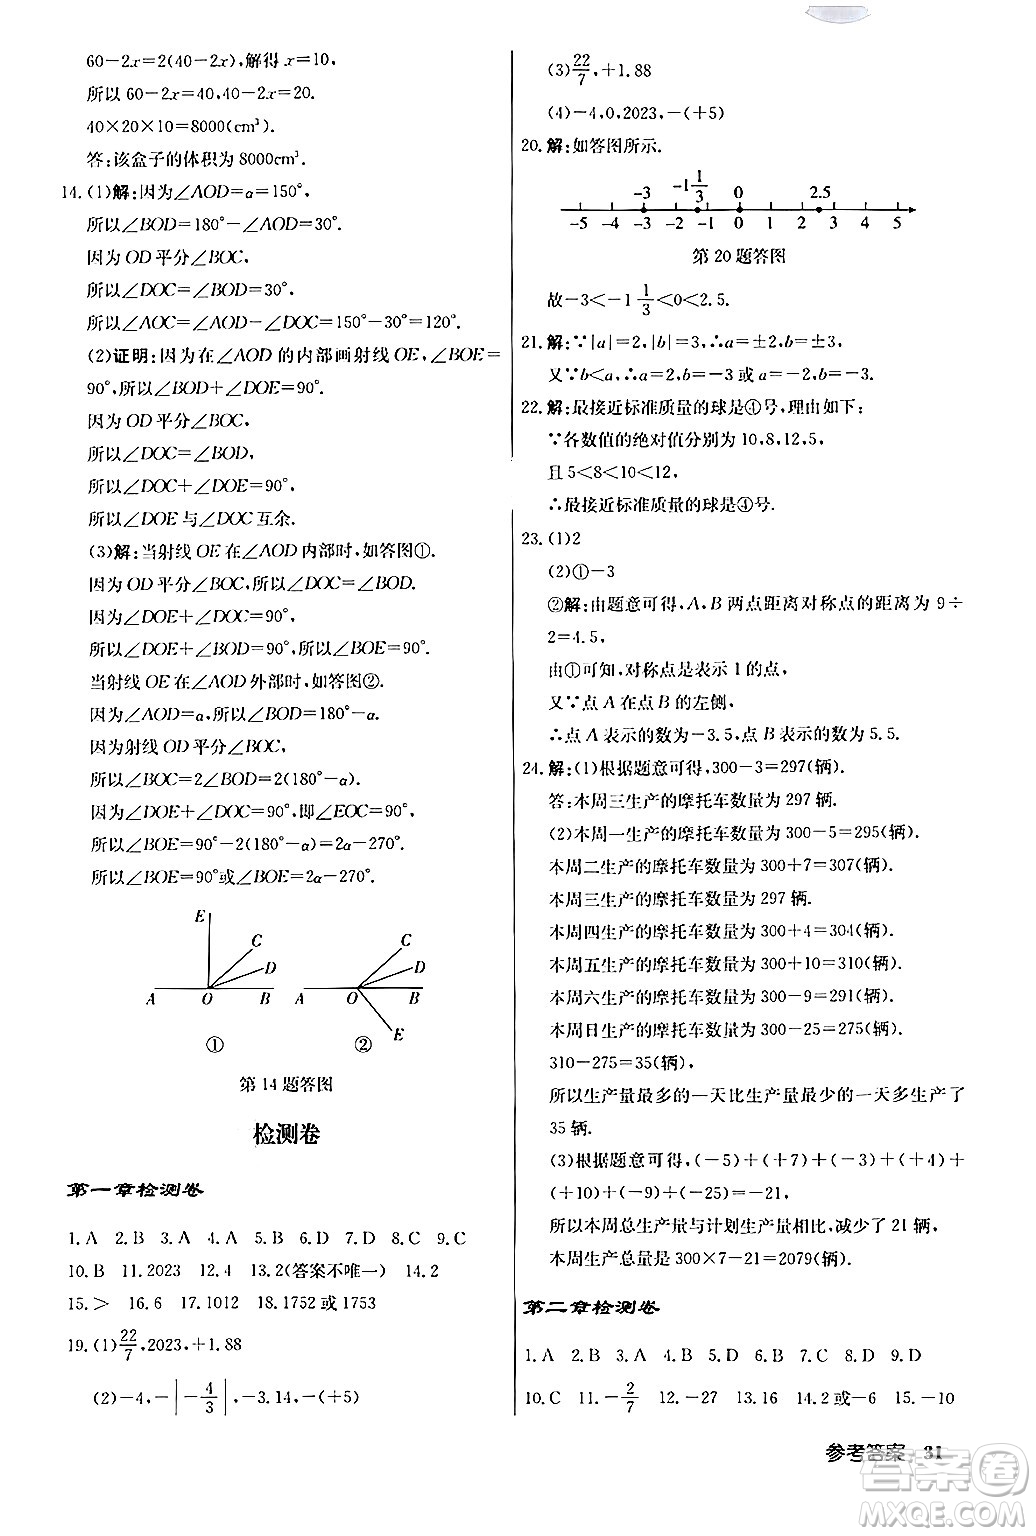 60－2x＝2(40－2x),解得 x＝10,
所以 60－2x＝40,40－2x＝20.
40×20×10＝8000(cm³).
答:该盒子的体积为 8000cm³.
14.(1)解:因为∠AOD＝α＝150°,
所以∠BOD＝180°－∠AOD＝30°.
因为 OD 平分∠BOC,
所以∠DOC＝∠BOD＝30°.
所以∠AOC＝∠AOD－∠DOC＝150°－30°＝120°.
(2)证明:因为在∠AOD 的内部画射线 OE,∠BOE＝
90°,所以∠BOD＋∠DOE＝90°.
因为 OD 平分∠BOC,
所以∠DOC＝∠BOD,
所以∠DOC＋∠DOE＝90°,
所以∠DOE 与∠DOC 互余.
(3)解:当射线 OE 在∠AOD 内部时,如答图①.
因为 OD 平分∠BOC,所以∠BOD＝∠DOC.
因为∠DOE＋∠DOC＝90°,
所以∠DOE＋∠BOD＝90°,所以∠BOE＝90°.
当射线 OE 在∠AOD 外部时,如答图②.
因为∠AOD＝α,所以∠BOD＝180°－α.
因为射线 OD 平分∠BOC,
所以∠BOC＝2∠BOD＝2(180°－α).
因为∠DOE＋∠DOC＝90°,即∠EOC＝90°,
所以∠BOE＝90°－2(180°－α)＝2α－270°.
所以∠BOE＝90°或∠BOE＝2α－270°.
E C D A O B
①
C D A O B E
②
第 14 题答图
检测卷
第一章检测卷
1.A 2.B 3.A 4.A 5.B 6.D 7.C 8.C 9.C
10.B 11.2023 12.4 13.2(答案不唯一) 14.2
15.＞ 16.6 17.1012 18.1752 或 1753
19.(1)22/7,2023,＋1.88
(2)－4,－|－4/3|,－3.14,－(＋5)
(3)22/7,＋1.88
(4)－4,0,2023,－(＋5)
20.解:如答图所示.
－3 －1 1/3 0 2.5
－5 －4 －3 －2 －1 0 1 2 3 4 5
第 20 题答图
故－3＜－1 1/3＜0＜2.5.
21.解:∵|a|＝2,|b|＝3,∴a＝±2,b＝±3,
又∵b＜a,∴a＝2,b＝－3 或 a＝－2,b＝－3.
22.解:最接近标准质量的球是④号,理由如下:
∵各数值的绝对值分别为 10,8,12,5,
且 5＜8＜10＜12,
∴最接近标准质量的球是④号.
23.(1)2
(2)①－3
②解:由题意可得,A、B 两点距离对称点的距离为 9÷
2＝4.5,
由①可知,对称点是表示 1 的点,
又∵点 A 在点 B 的左侧,
∴点 A 表示的数为－3.5,点 B 表示的数为 5.5.
24.解:(1)根据题意可得,300－3＝297(辆).
答:本周三生产的摩托车数量为 297 辆.
(2)本周一生产的摩托车数量为 300－5＝295(辆).
本周二生产的摩托车数量为 300＋7＝307(辆).
本周三生产的摩托车数量为 297 辆.
本周四生产的摩托车数量为 300＋4＝304(辆).
本周五生产的摩托车数量为 300＋10＝310(辆).
本周六生产的摩托车数量为 300－9＝291(辆).
本周日生产的摩托车数量为 300－25＝275(辆).
310－275＝35(辆).
所以生产量最多的一天比生产量最少的一天多生产了
35 辆.
(3)根据题意可得,(－5)＋(＋7)＋(－3)＋(＋4)＋
(＋10)＋(－9)＋(－25)＝－21,
所以本周总生产量与计划生产量相比,减少了 21 辆,
本周生产总量是 300×7－21＝2079(辆).
第二章检测卷
1.A 2.B 3.A 4.A 5.D 6.B 7.C 8.D 9.D
10.C 11.－2/7 12.－27 13.16 14.2 或－6 15.－10
参考答案 31
答案圈
MXQE.COM